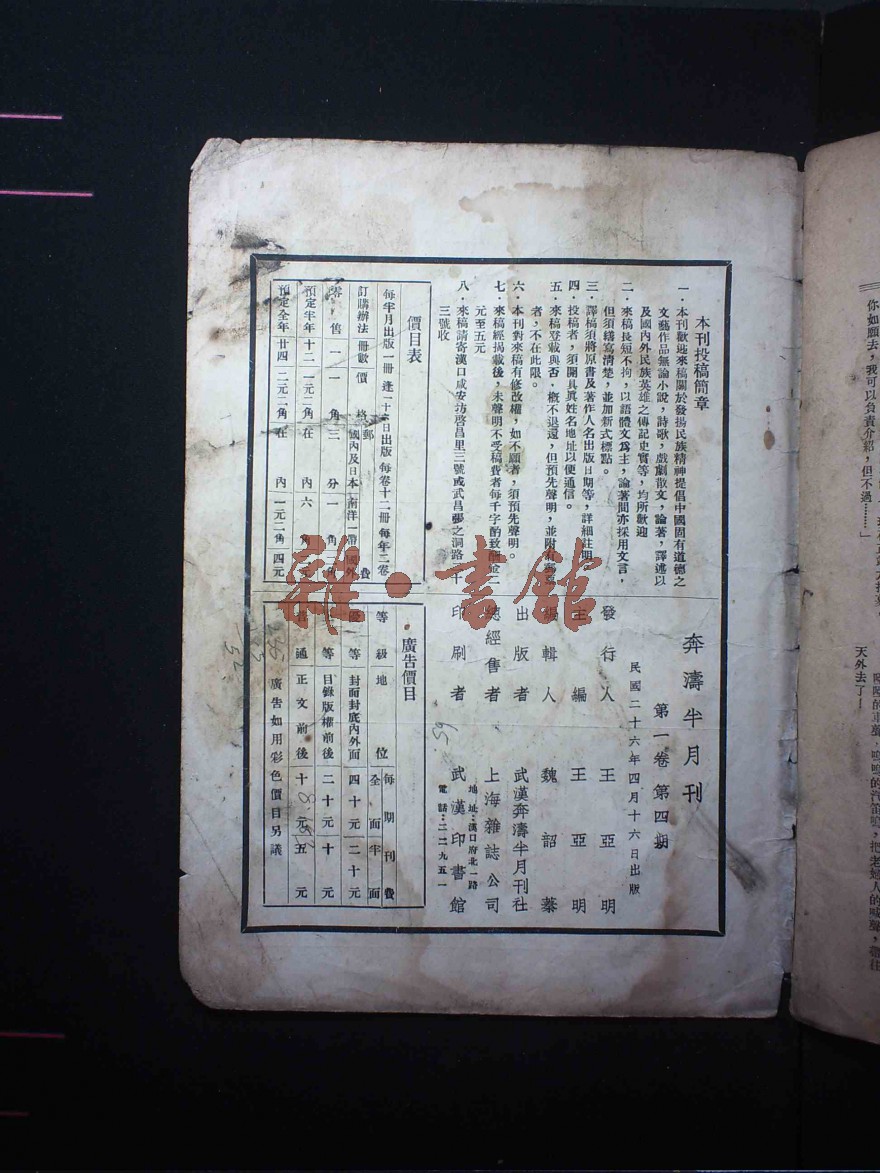 本刊投稿簡章
一．本刊歡迎來稿關於發揚民族精神提倡中國固有道德之
文藝作品無論小說，詩歌，戲劇散文，論著，譯述以
及國內外民族英雄之傳記史實等，均所歡迎
二．來稿長短不拘，以語體文爲主，論著間亦採用文言，
但須繕寫清楚，並加新式標點。
三．譯稿須將原書及著作人名出版日期等，詳細註明
四．投稿者，須開具眞姓名地址以便通信。
五．來稿登載與否，概不退還，但預先聲明，並附有郵票
者，不在此限。
六．本刊對來稿有修改權，如不願者，須預先聲明
七．來稿經揭載後，未聲明不受稿費者每千字酌致酬金二
元至五元
八．來稿請寄漢口咸安坊啓昌里三號或武昌張之洞路
三號收
價目表
每半月出版一冊 逢一十六日出版 每卷十二冊 每年二卷
訂購辦法 冊數 價格 郵費 國內及日本 南洋 國外
零售 一 一角 三分 一角
預定半年 十二 一元二角 在內 六角
預定全年 廿四 二元二角 在內 一元二角 四元
奔濤半月刊
第一卷 第四期
民國二十六年四月十六日出版
發行人 王亞明
主編 王亞明
編輯人 魏韶蓁
出版者 武漢奔濤半月刊社
總經售者 上海雜誌公司
地址：漢口府北一路
印刷者 武漢印書館
電話：二二九五一
廣告價目
等級 地位 每期刊費 全面 半面
優等 封面封底內外面 四十元 二十元
等 目錄版權前後 二十元 十元
普通 正文前後 十元 五元
廣告如用彩色價目另議
雜·書館
你如願去，我可以負責介紹，但不過……」
天外去了！